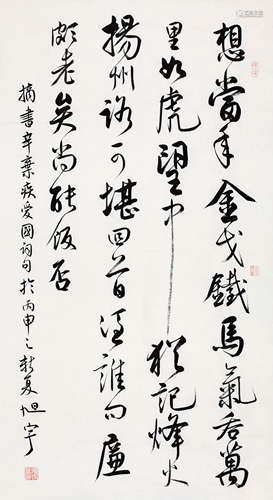 想當年金戈鐵馬氣吞萬
里如虎望中猶記烽火
揚州路可堪回首憑誰問廉
頗老矣尚能飯否
摘書辛棄疾愛國詞句於丙申之新夏旭宇